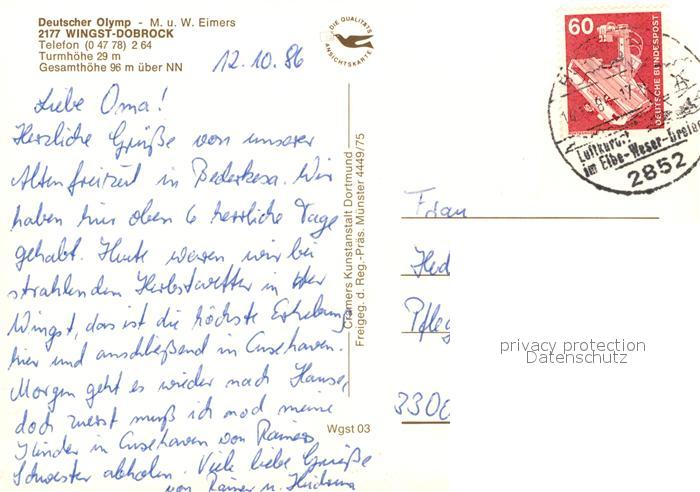 Deutscher Olymp - M. u. W. Eimers
2177 WINGST-DOBROCK
Telefon (0 47 78) 2 64
Turmhöhe 29 m
Gesamthöhe 96 m über NN
12.10.86
DIE QUALITÄTS
ANSICHTSKARTE
Liebe Oma!
Herzliche Grüße von unserer
Altenfreizeit in Bederkesa. Wir
haben hier oben 6 herrliche Tage
gehabt. Heute waren wir bei
strahlendem Herbstwetter in der
Wingst, das ist die höchste Erhebung
hier und anschließend in Cuxhaven.
Morgen geht es wieder nach Hause,
doch zuerst muß ich noch meine
Kinder in Cuxhaven von Rainers
Schwester abholen. Viele liebe Grüße
von Rainer u.
Cramers Kunstanstalt Dortmund
Freigeg. d. Reg.-Präs. Münster 4449/75
Wgst 03
60
DEUTSCHE BUNDESPOST
Luftkurort
im Elbe-Weser-Dreieck
2852
Frau
Hed
Pfleg
330
privacy protection
Datenschutz